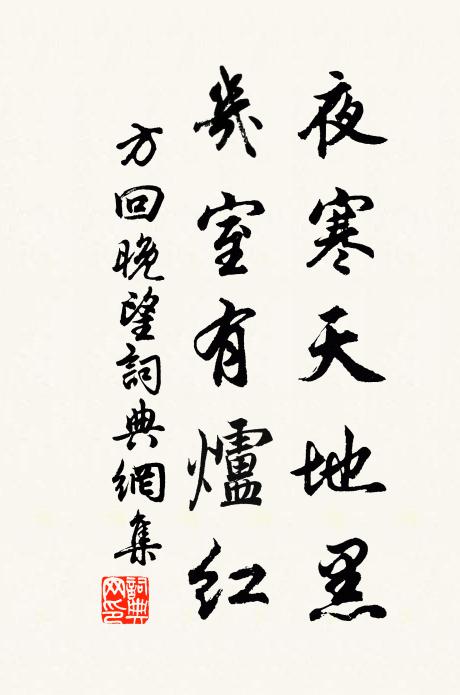 夜寒天地黑
幾室有爐紅
方回晚望詞典網集
詞典網印